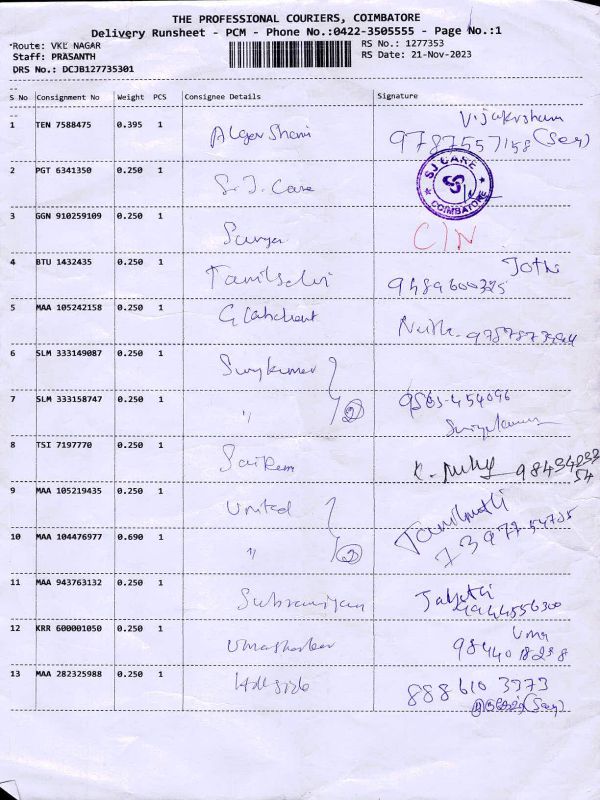 THE PROFESSIONAL COURIERS, COIMBATORE
Delivery Runsheet - PCM - Phone No.:0422-3505555 - Page No.:1
Route: VKL NAGAR RS No.: 1277353
Staff: PRASANTH RS Date: 21-Nov-2023
DRS No.: DCJB127735301
S No Consignment No Weight PCS Consignee Details Signature
1 TEN 7588475 0.395 1
9787557158 (Sey)
2 PGT 6341350 0.250 1 S.J. Care SJ CARE COIMBATORE
3 GGN 910259109 0.250 1 Surya C/N
4 BTU 1432435 0.250 1 Tamilselvi Jothi
9489600325
5 MAA 105242158 0.250 1
6 SLM 333149087 0.250 1 Surykumar
7 SLM 333158747 0.250 1 " 2 454096
8 TSI 7197770 0.250 1 Sairam
9 MAA 105219435 0.250 1 United
10 MAA 104476977 0.690 1 " 2
11 MAA 943763132 0.250 1 Subramiyan
9944556300
12 KRR 600001050 0.250 1 Uma
13 MAA 282325988 0.250 1 888 610 3973
(Sey)